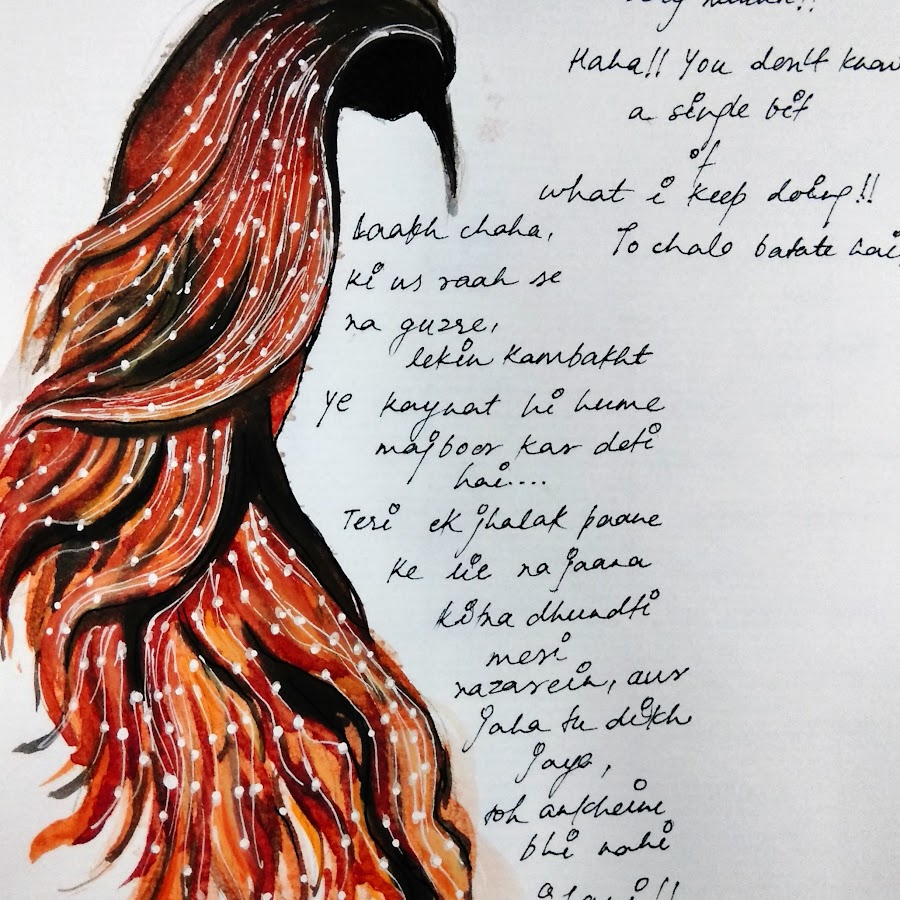 Haha!! You don't know
a single bit
of
what i keep doing!!
To chalo batate hai,
Laakh chaha,
ki us raah se
na guzre,
lekin kambakht
ye kaynat hi hume
majboor kar deti
hai....
Teri ek jhalak paane
ke lie na jaana
kitna dhundti
meri
nazarein, aur
jaha tu dikh
jaye,
toh ankhein
bhi nahi